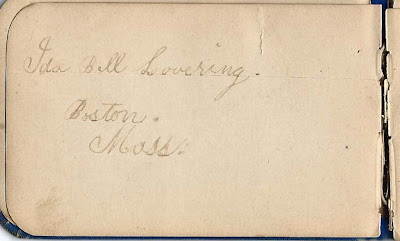 Ida Bell Lovering.
Boston.
Mass.